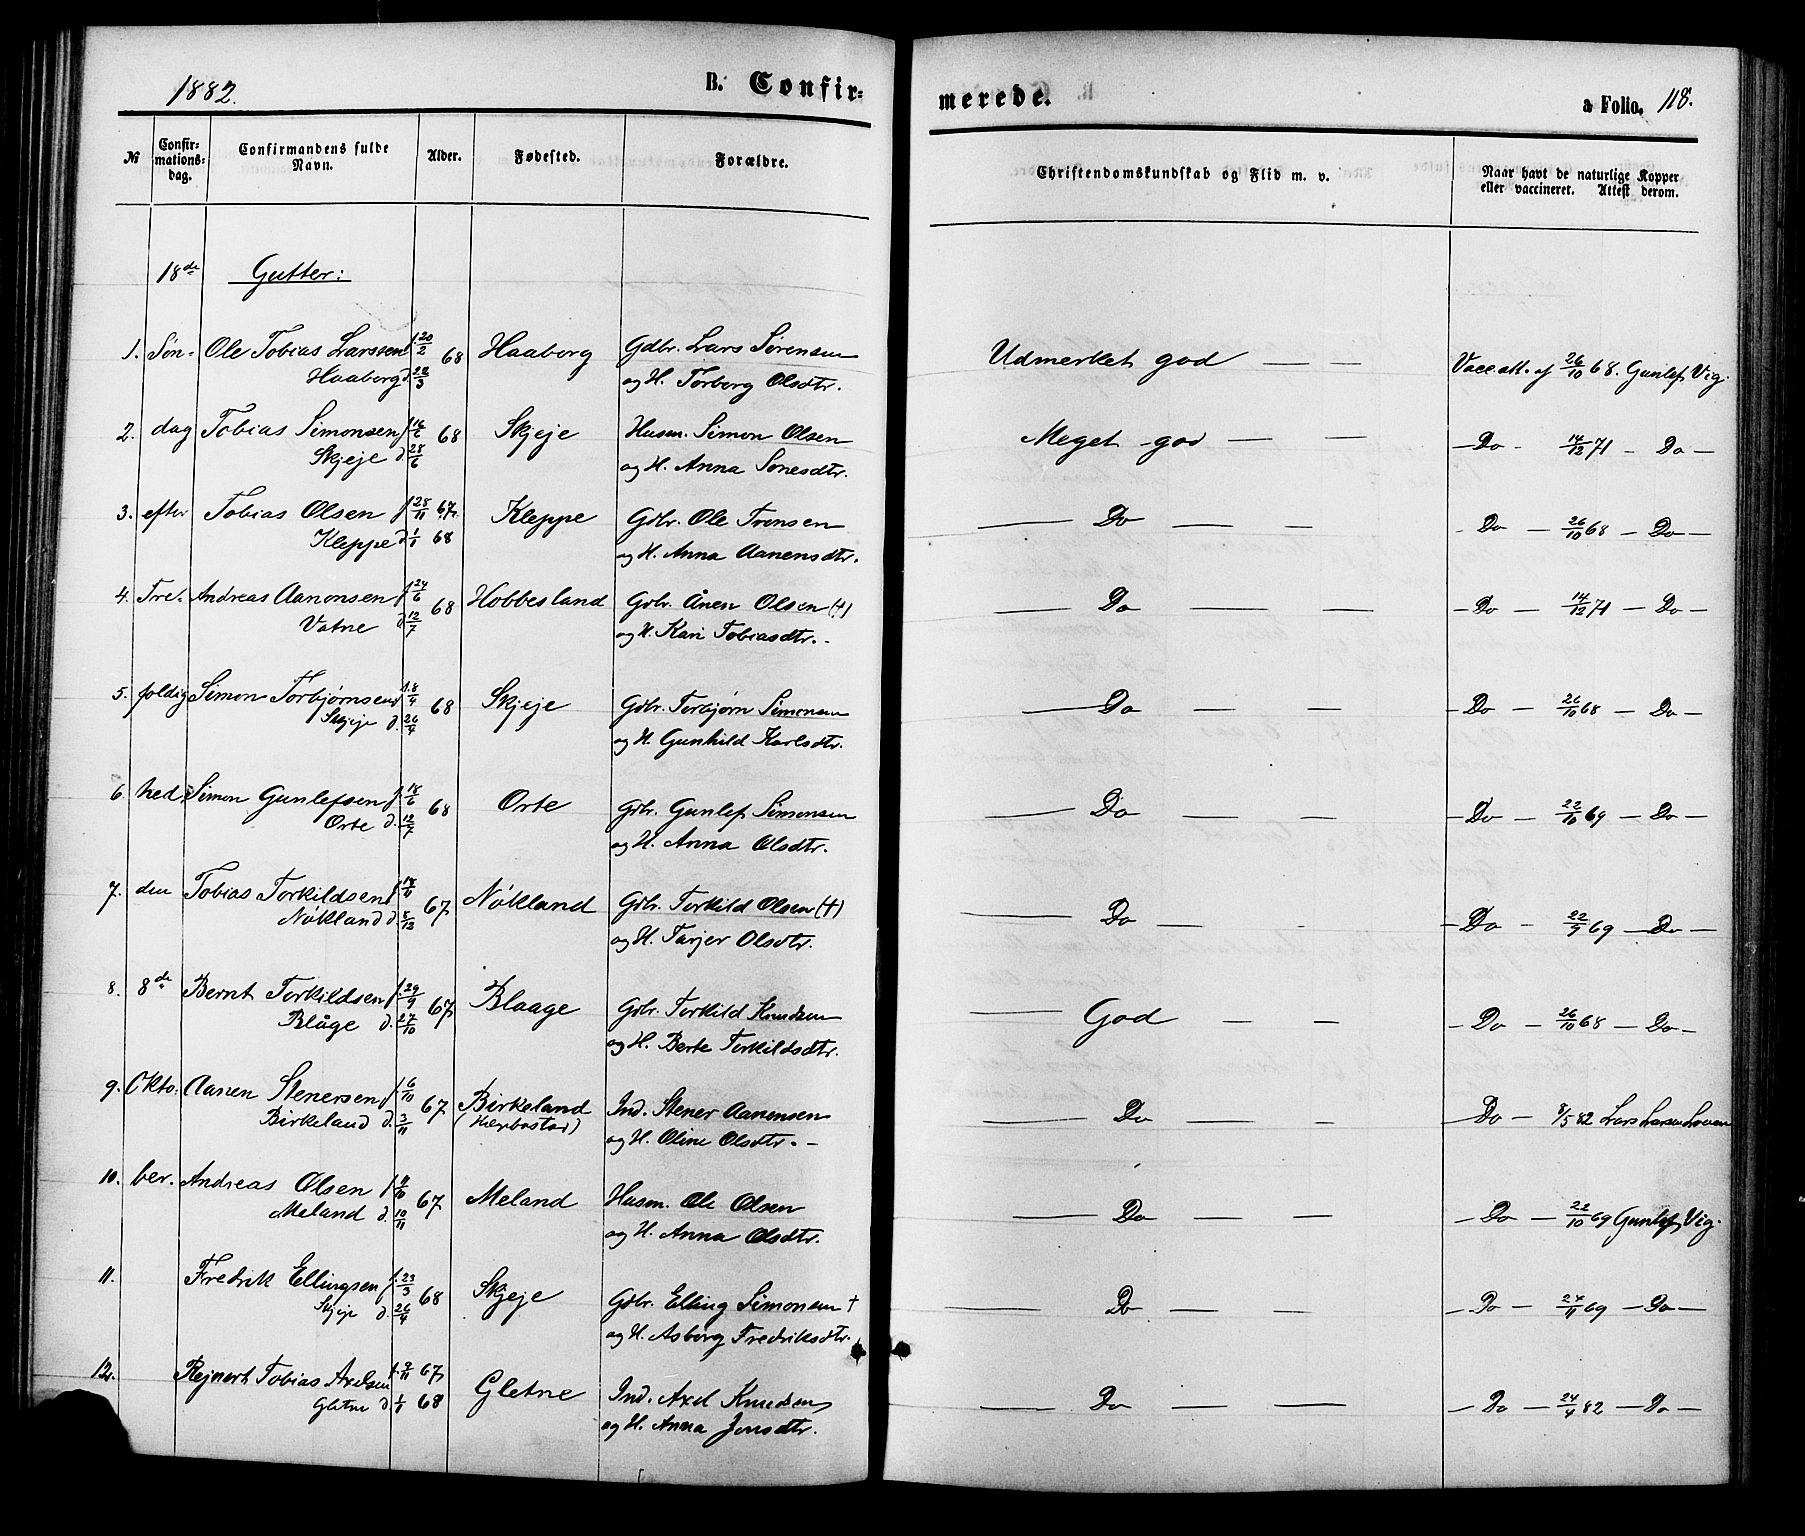 1882.
B. Confir-
merede.
a Folio. 118.
№
Confir-
mations-
dag.
Confirmandens fulde
Navn.
Alder.
Fødested.
Forældre.
Christendomskundskab og Flid m. v.
Naar havt de naturlige Kopper
eller vaccineret. Attest derom.
18de Gutter:
1. Søn- Ole Tobias Larssen f. 20/2 68 Haaborg Gdbr. Lars Sørensen Udmerket god — — Vacc. att. af 26/10 68. Gunlef Vig.
Haaborg d. 22/3 og H. Torborg Olsdtr.
2. dag Tobias Simonsen f. 14/6 68 Skjeje Husm. Simon Olsen Meget god — — — Do - 14/12 71 — Do —
Skjeje d. 28/6 og H. Anna Sonesdtr.
3. efter Tobias Olsen f. 28/11 67. Kleppe Gdbr. Ole Tronsen — Do — — - Do — 26/10 68 — Do —
Kleppe d. 1/1 68 og H. Anna Aanensdtr.
4. Tre- Andreas Aanonsen f. 24/6 68 Hobbesland Gdbr. Ånen Olsen (†) — Do — — — Do — 14/12 71 — Do —
Vatne d. 12/7 og H. Kari Tobiasdtr.
5. foldig Simon Torbjørnsen f. 8/4 68 Skjeje Gdbr. Torbjørn Simonsen — Do — — — Do — 26/10 68 — Do —
Skjeje d. 26/4 og H. Gunhild Karlsdtr.
6. hed, Simon Gunlefsen f. 18/6 68 Orte Gdbr. Gunlef Simonsen — Do — — — Do — 22/10 69 — Do —
Orte d. 12/7 og H. Anna Olsdtr.
7. den Tobias Torkildsen f. 67 Nökland Gdbr. Torkild Olsen (†) — Do — — — Do - 22/9 69 — Do —
Nökland d. 8/12 og H. Tarjer Olsdtr.
8. 8de Bernt Torkildsen f. 29/9 67 Blaage Gdbr. Torkild Knudsen — God — — — Do — 26/10 68 — Do —
Blåge d. 27/10 og H. Berte Torkildsdtr.
9. Okto- Aanen Stenersen f. 6/10 67 Birkeland Ind. Stener Aanensen — Do — — — Do — 8/5 82 Lars Larsen
Birkeland d. 3/11 og H. Oline Olsdtr. -
10. ber. Andreas Olsen f. 67 Meland Husm. Ole Olsen — Do — — — Do — 22/10 69 Gunlef Vig.
Meland d. 10/11 og H. Anna Olsdtr.
11. Fredrik Ellingsen f. 23/3 68 Skjeje Gdbr. Elling Simonsen † — Do — — — Do — 27/11 69 — Do —
Skjeje d. 26/4 og H. Asborg Fredriksdtr.
12. Rejnert Tobias Axelsen f. 67 Gletne Ind. Axel Knudsen — Do — — — Do — 24/4 82 — Do —
Gletne d. 1/1 68 og H. Anna Jonsdtr.